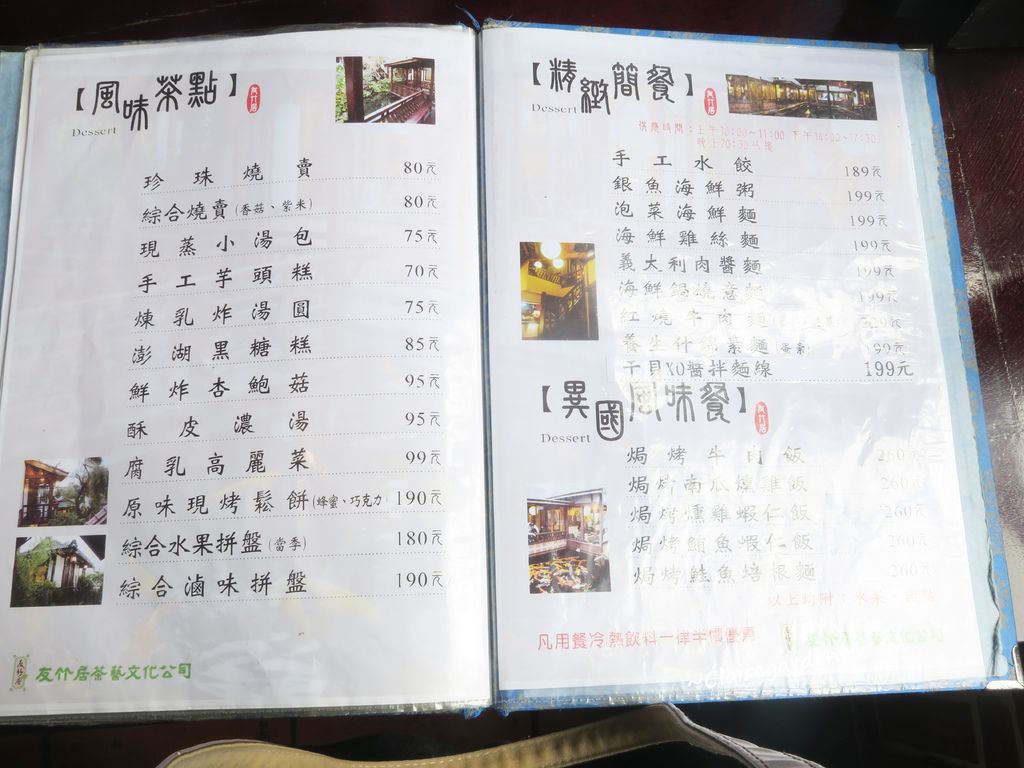 【風味茶點】
友竹居
Dessert
珍珠燒賣 80元
綜合燒賣(香菇、紫米) 80元
現蒸小湯包 75元
手工芋頭糕 70元
煉乳炸湯圓 75元
澎湖黑糖糕 85元
鮮炸杏鮑菇 95元
酥皮濃湯 95元
腐乳高麗菜 99元
原味現烤鬆餅(蜂蜜、巧克力) 190元
綜合水果拼盤(當季) 180元
綜合滷味拼盤 190元
友竹居茶藝文化公司
【精緻簡餐】
友竹居
Dessert
供應時間：上午10:00~11:00 下午14:00~17:30
晚上20:30
手工水餃 189元
銀魚海鮮粥 199元
泡菜海鮮麵 199元
海鮮雞絲麵 199元
義大利肉醬麵 199元
海鮮鍋燒意麵 199元
紅燒牛肉麵
養生什錦素麵(蛋素) 199元
干貝XO醬拌麵線 199元
【異國風味餐】
友竹居
Dessert
焗烤牛肉飯 260元
焗烤南瓜燻雞飯 260元
焗烤燻雞蝦仁飯 260元
焗烤鮪魚蝦仁飯 260元
焗烤鮭魚培根麵 260元
以上均附：水果、
凡用餐冷熱飲料一律半價優惠
友竹居茶藝文化公司